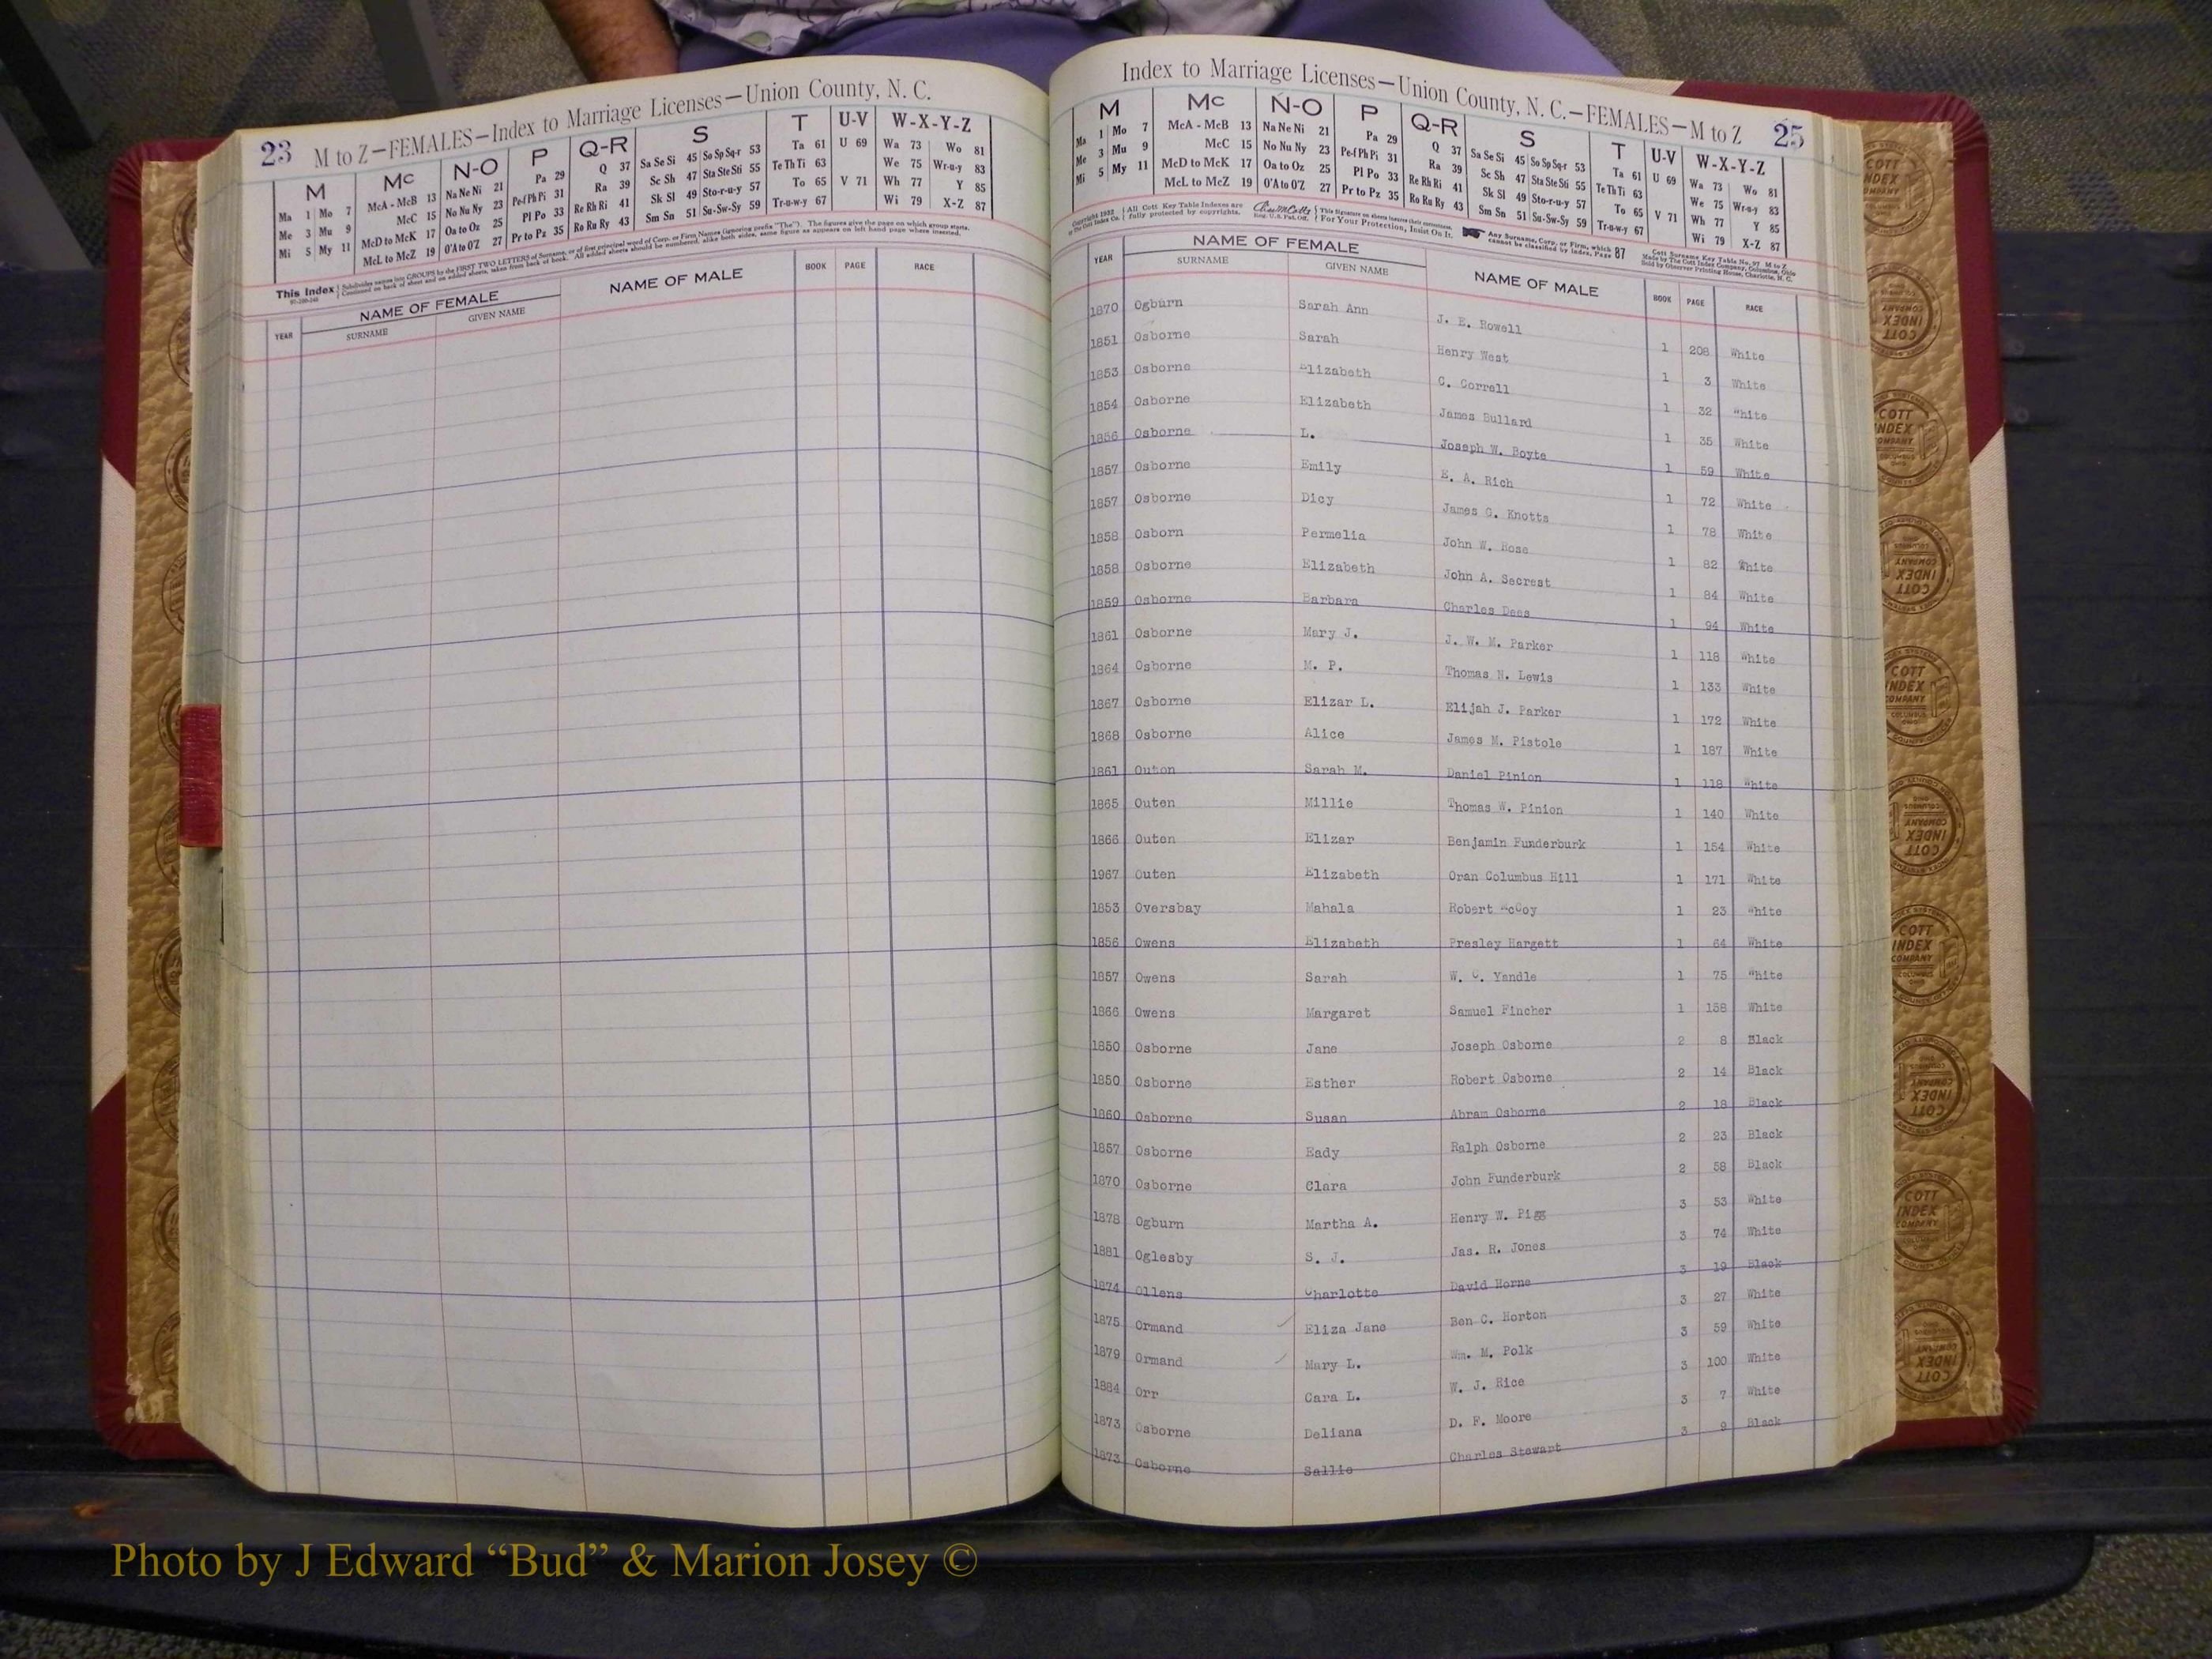 23 M to Z—FEMALES—Index to Marriage Licenses—Union County, N. C.
M Mc N-O P Q-R S T U-V W-X-Y-Z
Ma 1 Mo 7 McA - McB 13 Na Ne Ni 21 Pa 29 Q 37 Sa Se Si 45 So Sp Sq-r 53 Ta 61 U 69 Wa 73 Wo 81
Me 3 Mu 9 McC 15 No Nu Ny 23 Pe-f Ph Pi 31 Ra 39 Sc Sh 47 Sta Ste Sti 55 Te Th Ti 63 We 75 Wr-u-y 83
Mi 5 My 11 McD to McK 17 Oa to Oz 25 Pl Po 33 Re Rh Ri 41 Sk Sl 49 Sto-r-u-y 57 To 65 V 71 Wh 77 Y 85
McL to McZ 19 O'A to O'Z 27 Pr to Pz 35 Ro Ru Ry 43 Sm Sn 51 Su-Sw-Sy 59 Tr-u-w-y 67 Wi 79 X-Z 87
This Index Subdivides names into GROUPS by the FIRST TWO LETTERS of Surname, or of first principal word of Corp. or Firm Names (ignoring prefix "The"). The figures give the page on which group starts.
Continued on back of sheet and on added sheets, taken from back of book. All added sheets should be numbered, alike both sides, same figure as appears on left hand page where inserted.
YEAR NAME OF FEMALE SURNAME GIVEN NAME NAME OF MALE BOOK PAGE RACE
Index to Marriage Licenses—Union County, N. C.—FEMALES—M to Z 25
M Mc N-O P Q-R S T U-V W-X-Y-Z
Ma 1 Mo 7 McA - McB 13 Na Ne Ni 21 Pa 29 Q 37 Sa Se Si 45 So Sp Sq-r 53 Ta 61 U 69 Wa 73 Wo 81
Me 3 Mu 9 McC 15 No Nu Ny 23 Pe-f Ph Pi 31 Ra 39 Sc Sh 47 Sta Ste Sti 55 Te Th Ti 63 We 75 Wr-u-y 83
Mi 5 My 11 McD to McK 17 Oa to Oz 25 Pl Po 33 Re Rh Ri 41 Sk Sl 49 Sto-r-u-y 57 To 65 V 71 Wh 77 Y 85
McL to McZ 19 O'A to O'Z 27 Pr to Pz 35 Ro Ru Ry 43 Sm Sn 51 Su-Sw-Sy 59 Tr-u-w-y 67 Wi 79 X-Z 87
Copyright 1932 All Cott Key Table Indexes are fully protected by copyrights. This Signature on sheets insures their correctness. For Your Protection, Insist On It. Any Surname, Corp. or Firm, which cannot be classified by Index, Page 87
Cott Surname Key Table No. 97 M to Z
Made by The Cott Index Company, Columbus, Ohio
Sold by Observer Printing House, Charlotte, N. C.
YEAR NAME OF FEMALE SURNAME GIVEN NAME NAME OF MALE BOOK PAGE RACE
1870 Ogburn Sarah Ann J. E. Rowell 1 208 White
1851 Osborne Sarah Henry West 1 3 White
1853 Osborne Elizabeth C. Correll 1 32 White
1854 Osborne Elizabeth James Bullard 1 35 White
1856 Osborne L. Joseph W. Boyte 1 59 White
1857 Osborne Emily E. A. Rich 1 72 White
1857 Osborne Dicy James G. Knotts 1 78 White
1858 Osborn Permelia John W. Hose 1 82 White
1858 Osborne Elizabeth John A. Secrest 1 84 White
1859 Osborne Barbara Charles Dees 1 94 White
1861 Osborne Mary J. J. W. M. Parker 1 118 White
1864 Osborne M. P. Thomas H. Lewis 1 133 White
1867 Osborne Elizar L. Elijah J. Parker 1 172 White
1868 Osborne Alice James M. Pistole 1 187 White
1861 Outon Sarah M. Daniel Pinion 1 118 White
1865 Outen Millie Thomas W. Pinion 1 140 White
1866 Outen Elizar Benjamin Funderburk 1 154 White
1967 Outen Elizabeth Oran Columbus Hill 1 171 White
1853 Oversbay Mahala Robert McCoy 1 23 White
1856 Owens Elizabeth Presley Hargett 1 64 White
1857 Owens Sarah W. C. Yandle 1 75 White
1866 Owens Margaret Samuel Fincher 1 158 White
1850 Osborne Jane Joseph Osborne 2 8 Black
1850 Osborne Esther Robert Osborne 2 14 Black
1860 Osborne Susan Abram Osborne 2 18 Black
1857 Osborne Eady Ralph Osborne 2 23 Black
1870 Osborne Clara John Funderburk 2 58 Black
1878 Ogburn Martha A. Henry W. Pigg 3 53 White
1881 Oglesby S. J. Jas. R. Jones 3 74 White
1874 Ollens Charlotte David Horne 3 19 Black
1875 Ormand Eliza Jane Ben C. Horton 3 27 White
1879 Ormand Mary L. Wm. M. Polk 3 59 White
1884 Orr Cara L. W. J. Rice 3 100 White
1873 Osborne Deliana D. F. Moore 3 7 White
1873 Osborne Sallie Charles Stewart 3 9 Black
COTT INDEX COMPANY
Photo by J Edward “Bud” & Marion Josey ©